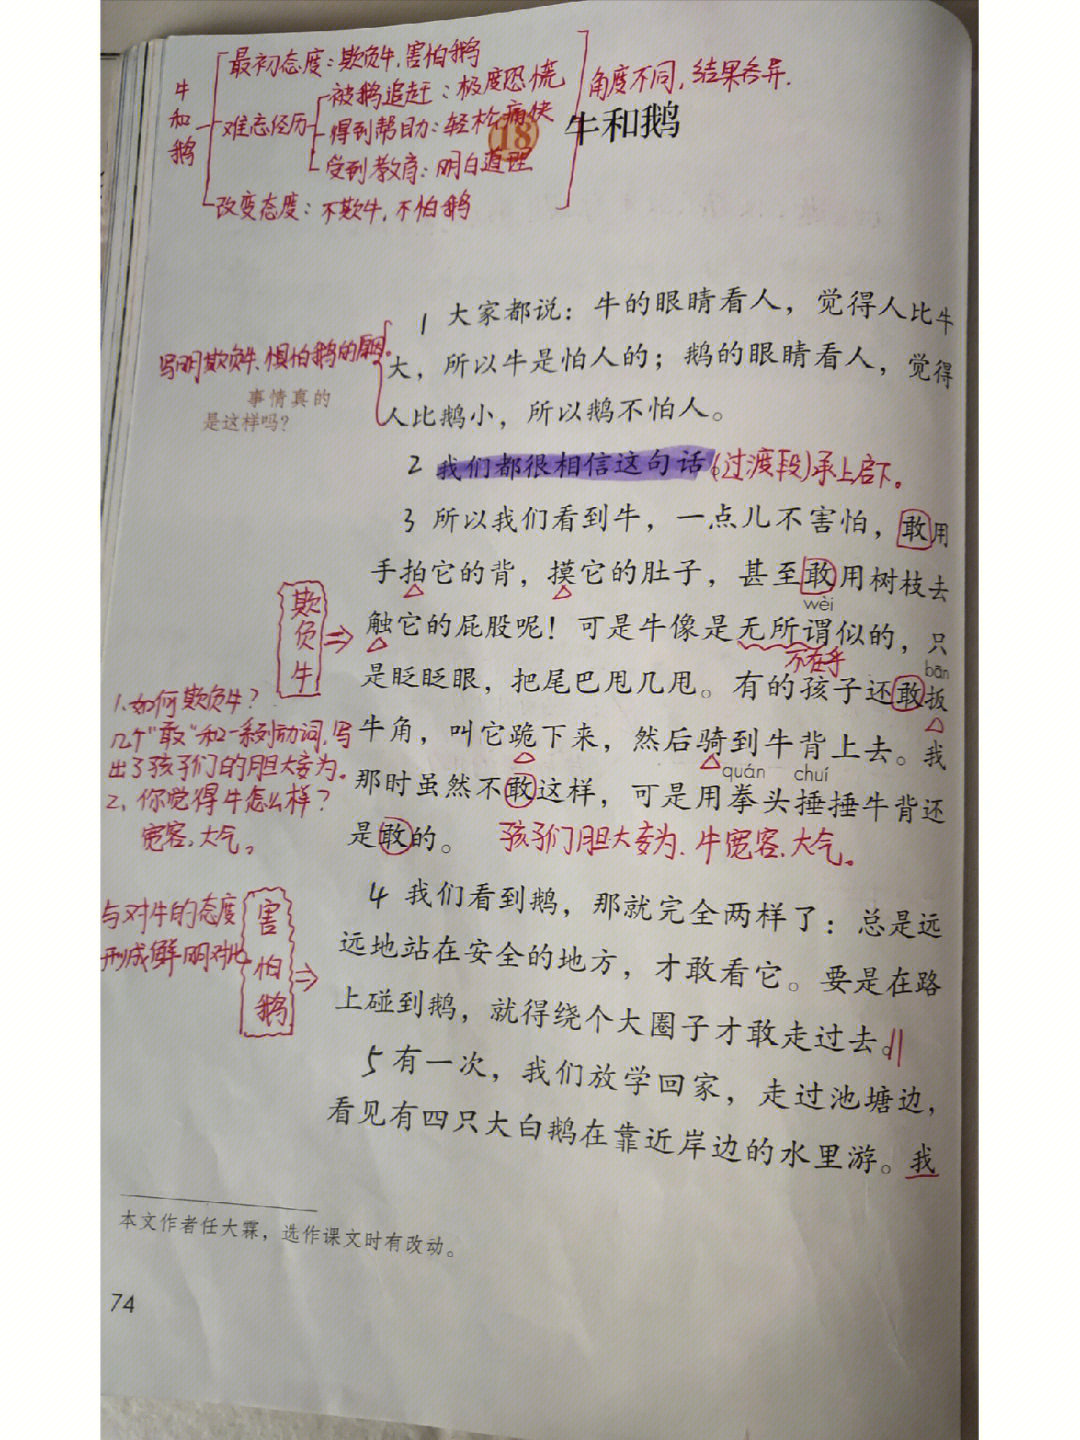 牛和鹅
最初态度：欺负牛，害怕鹅
难忘经历
被鹅追赶：极度恐慌
得到帮助：轻松痛快
受到教育：明白道理
改变态度：不欺牛，不怕鹅
角度不同，结果各异.
18 牛和鹅
1 大家都说：牛的眼睛看人，觉得人比牛
大，所以牛是怕人的；鹅的眼睛看人，觉得
人比鹅小，所以鹅不怕人。
写明欺负牛、惧怕鹅的原因。
事情真的
是这样吗？
2 我们都很相信这句话。(过渡段)承上启下。
3 所以我们看到牛，一点儿不害怕，敢用
手拍它的背，摸它的肚子，甚至敢用树枝去
wèi
触它的屁股呢！可是牛像是无所谓似的，只
不在乎
bān
是眨眨眼，把尾巴甩几甩。有的孩子还敢扳
牛角，叫它跪下来，然后骑到牛背上去。我
quán chuí
那时虽然不敢这样，可是用拳头捶捶牛背还
是敢的。 孩子们胆大妄为、牛宽容、大气。
欺负牛
1、如何欺负牛？
几个“敢”和一系列动词，写
出了孩子们的胆大妄为。
2、你觉得牛怎么样？
宽容，大气。
4 我们看到鹅，那就完全两样了：总是远
远地站在安全的地方，才敢看它。要是在路
上碰到鹅，就得绕个大圈子才敢走过去。
与对牛的态度
形成鲜明对比
害怕鹅
5 有一次，我们放学回家，走过池塘边，
看见有四只大白鹅在靠近岸边的水里游。我
本文作者任大霖，选作课文时有改动。
74